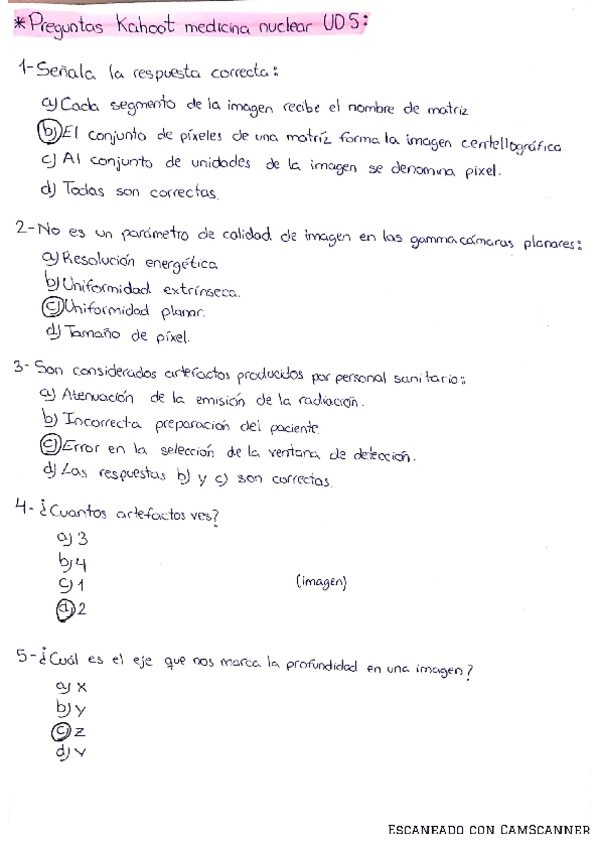 *Preguntas Kahoot medicina nuclear UD5:
1-Señala la respuesta correcta:
a) Cada segmento de la imagen recibe el nombre de matriz
b) El conjunto de píxeles de una matríz forma la imagen centellográfica.
c) Al conjunto de unidades de la imagen se denomina pixel.
d) Todas son correctas.
2-No es un parámetro de calidad de imagen en las gammacámaras planares:
a) Resolución energética
b) Uniformidad extrínseca.
c) Uniformidad planar.
d) Tamaño de píxel.
3- Son considerados artefactos producidos por personal sanitario:
a) Atenuación de la emisión de la radiación.
b) Incorrecta preparación del paciente.
c) Error en la selección de la ventana de detección.
d) Las respuestas b) y c) son correctas.
4- ¿Cuantos artefactos ves?
a) 3
b) 4
c) 1 (imagen)
d) 2
5-¿Cuál es el eje que nos marca la profundidad en una imagen?
a) x
b) y
c) z
d) v
ESCANEADO CON CAMSCANNER